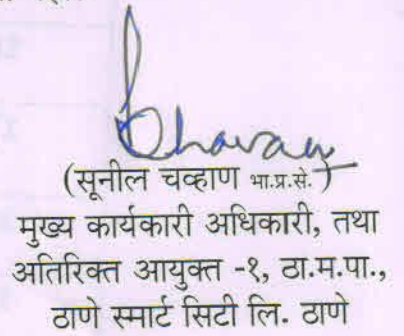 Chavan
(सूनील चव्हाण भा.प्र.से.)
मुख्य कार्यकारी अधिकारी, तथा
अतिरिक्त आयुक्त -१, ठा.म.पा.,
ठाणे स्मार्ट सिटी लि. ठाणे